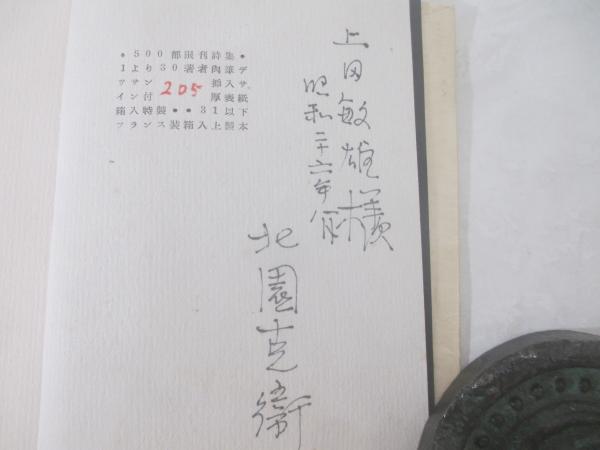 ●500部限刊詩集●
1より30著者肉筆デ
ッサン 205 挿入サ
イン付 厚表紙
箱入特製●●31以下
フランス装箱入上製本
上田敏雄様
昭和二十六年八月
北園克衛